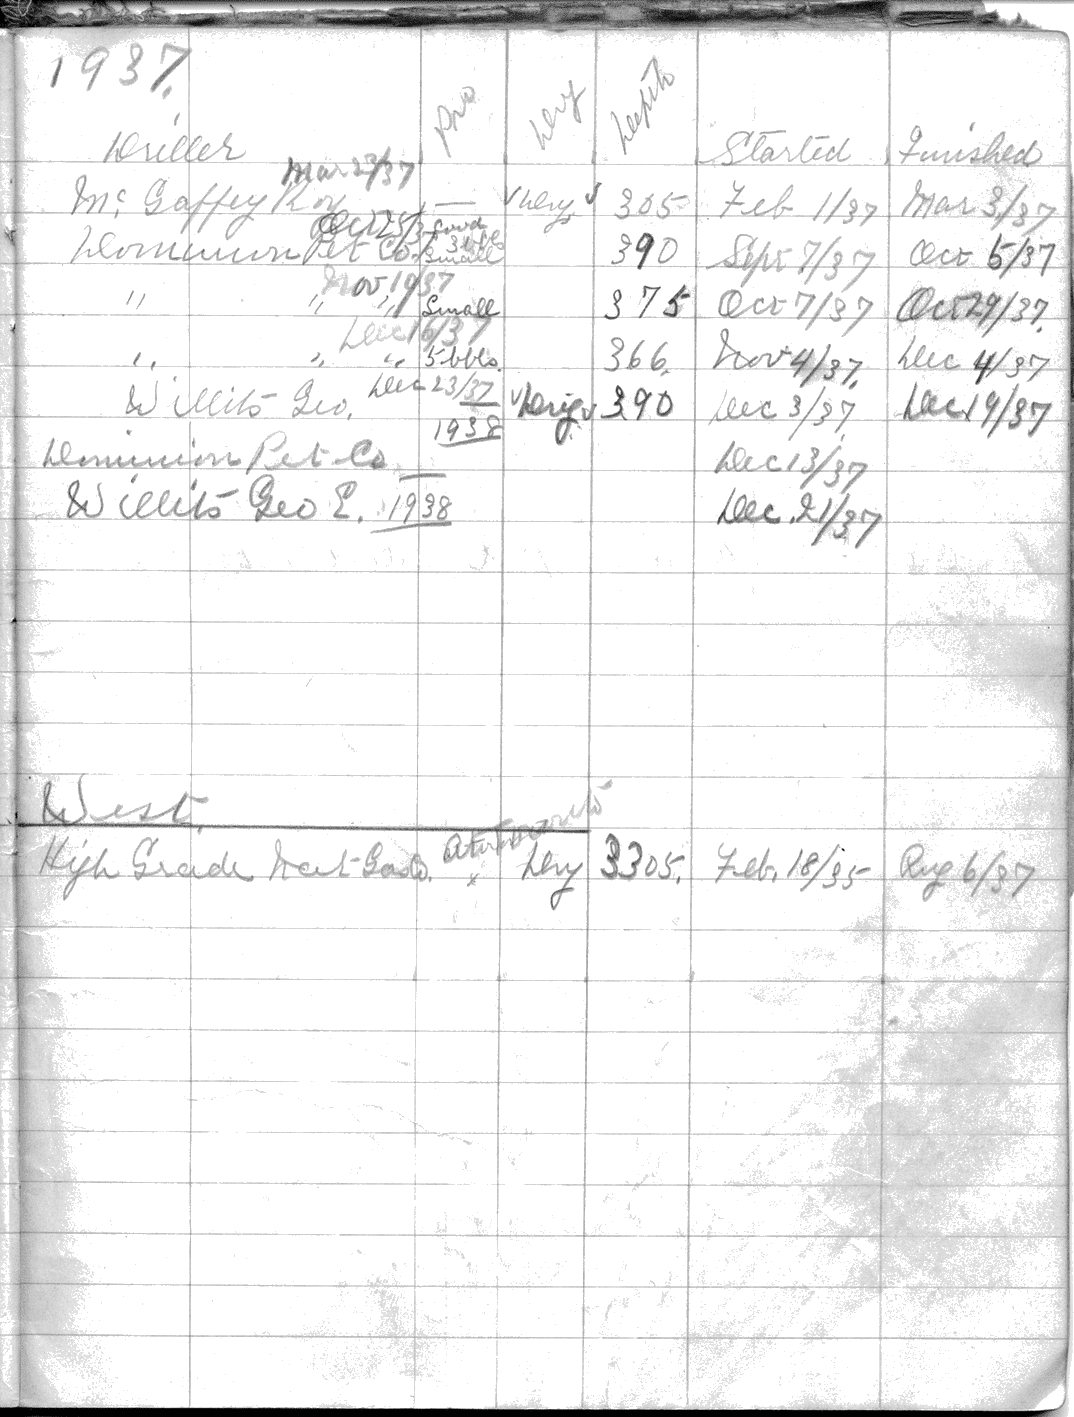 1937.
Driller Pro Dry Depth Started Finished
Mar 23/37
Mc Gaffey Roy — Dry 305 Feb 1/37 Mar 3/37
Oct 25/37 Good
Dominion Pet Co. small 390 Sept 7/37 Oct 5/37
Nov 1937
" " " Small 375 Oct 7/37 Oct 29/37.
Dec 16/37
" " " 5 bbls. 366. Nov 4/37. Dec 4/37
Dec 23/37
Willits Geo. Dry 390 Dec 3/37 Dec 19/37
1938
Dominion Pet Co — Dec 13/37
Willits Geo E. 1938 Dec. 21/37
West.
High Grade Nat Gas Co. Dry 3305. Feb. 18/35 Aug 6/37